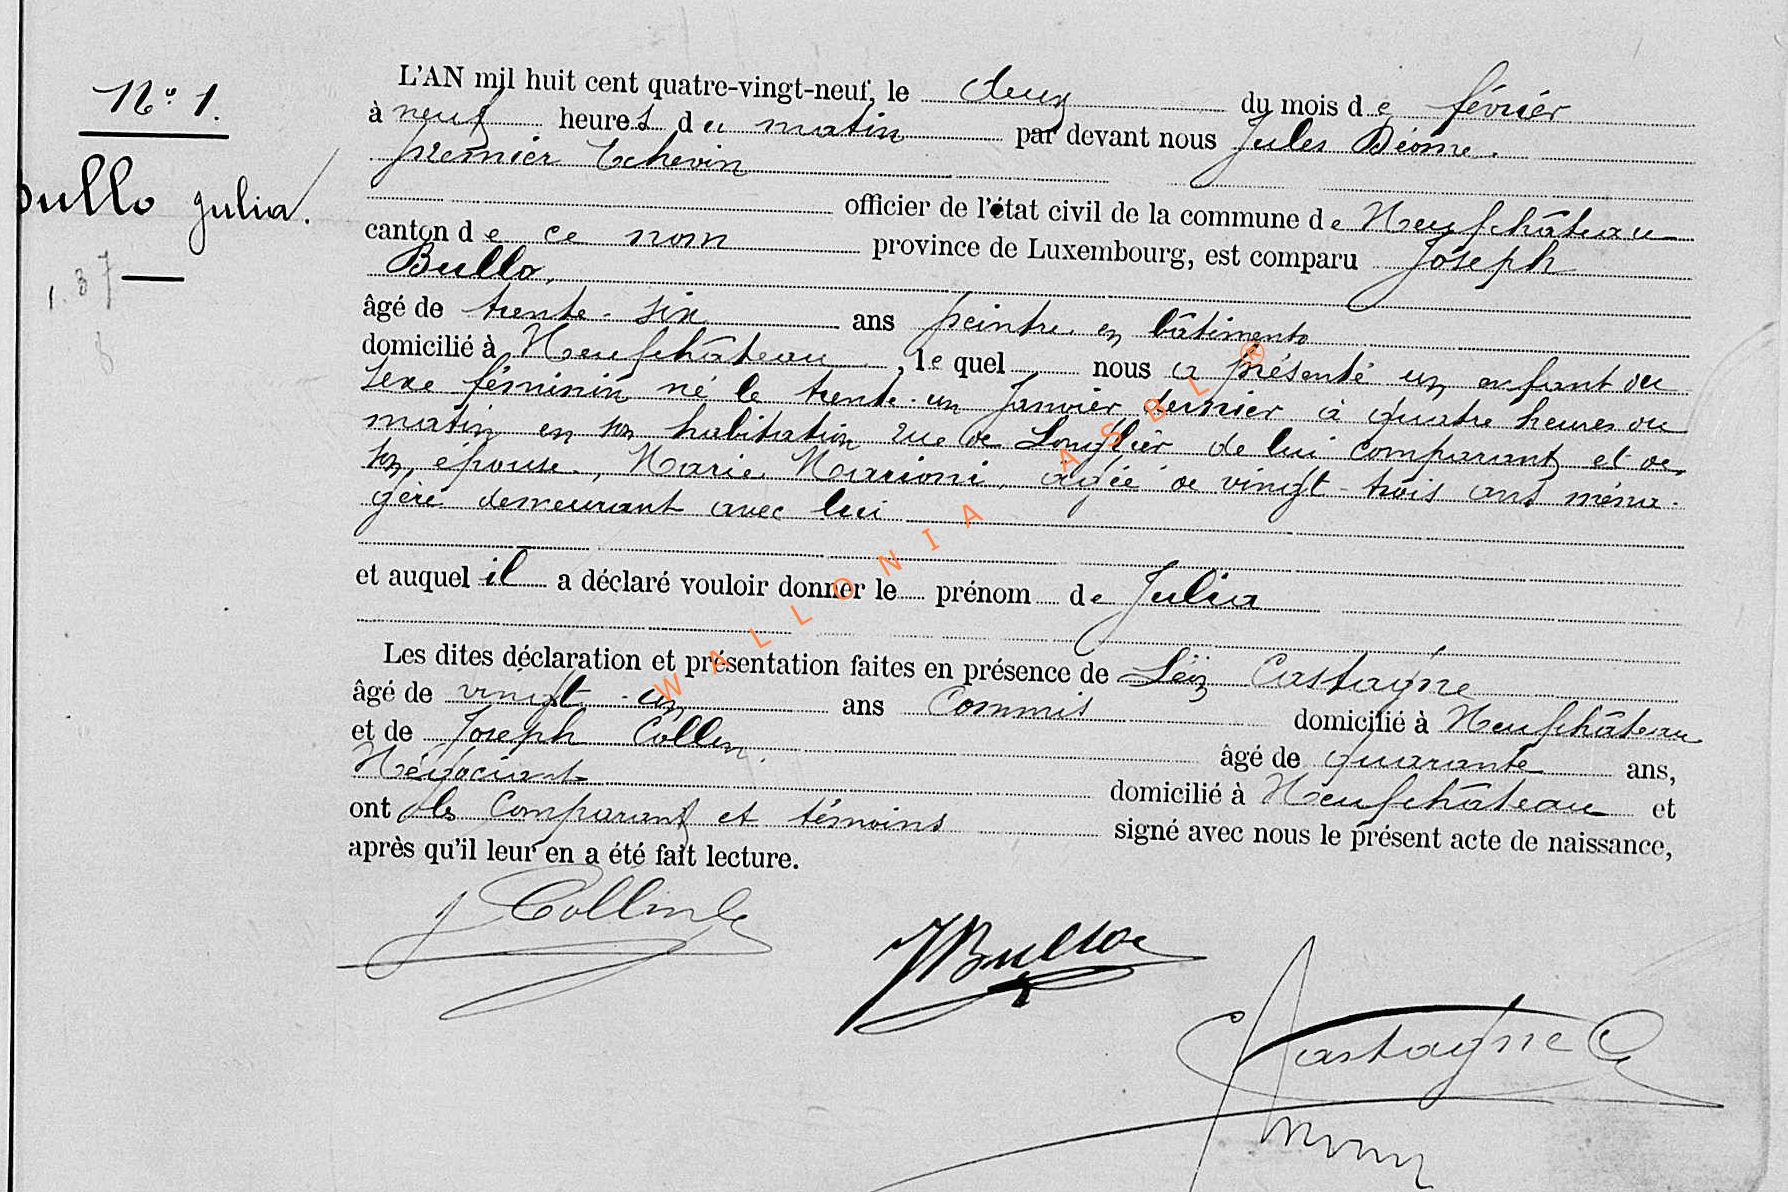 N° 1.
Bullo Julia.
1.37
8
L'AN mil huit cent quatre-vingt-neuf, le deux du mois de février
à neuf heures du matin par devant nous Jules
premier Echevin
officier de l'état civil de la commune de Neufchâteau
canton de ce nom province de Luxembourg, est comparu Joseph
Bullo,
âgé de trente-six ans peintre en bâtiments
domicilié à Neufchâteau, lequel nous a présenté un enfant du
sexe féminin né le trente-un Janvier dernier à quatre heures du
matin en son habitation rue de Longlier de lui comparant et de
son épouse, Marie Marioni, agée de vingt-trois ans ména-
gère demeurant avec lui
et auquel il a déclaré vouloir donner le prénom de Julia
Les dites déclaration et présentation faites en présence de Castagne
âgé de vingt-un ans Commis domicilié à Neufchâteau
et de Joseph Collin. âgé de quarante ans,
Négociant domicilié à Neufchâteau et
ont les comparant et témoins signé avec nous le présent acte de naissance,
après qu'il leur en a été fait lecture.
J Collin
J Bullo
Castagne
WALLONIA ASBL ®